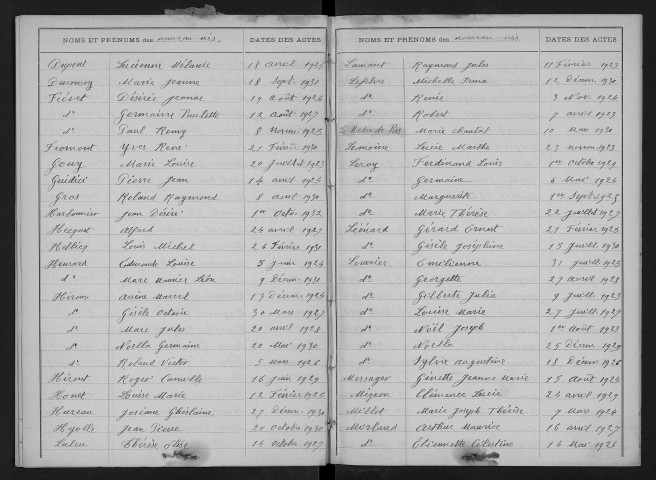 NOMS ET PRÉNOMS des nouveau-nés. DATES DES ACTES
Dupont Lucienne Mélanie 18 avril 1925
Marie Jeanne 18 Sept. 1931
Fiévet Désirée Jeanne 19 août 1924
do Germaine Paulette 12 août 1927
do Paul Remy 8 novem. 1925
Fromont Yves René 21 Février 1930
Gouy Marie Louise 20 juillet 1923
Guidici Pierre Jean 14 avril 1924
Gros Roland Raymond 8 avril 1930
Harbonnier Jean Désiré 1er Octob. 1932
Hecquet Alfred 24 avril 1927
Helbieg Louis Michel 26 Février 1931
Henrard Edmonde Louise 5 juin 1924
do Marc Maurice 9 Décem. 1931
Herow Arsène Marcel 13 Décem. 1926
do Gisèle Octavie 30 Mars 1927
do Marc Jules 20 avril 1928
do Noëlla Germaine 20 Mai 1930
do Roland Victor 5 Mars 1926
Hérout Roger Camille 16 juin 1929
Honet Louise Marie 12 Février 1925
Hureau Josiane Ghislaine 27 Décem. 1930
Hyolle Jean Pierre 20 Octobre 1930
Laleu Thérèse Elise 14 Octobre 1927
NOMS ET PRÉNOMS des nouveau-nés DATES DES ACTES
Lamant Raymond Jules 11 Février 1923
Lefebvre Michelle Irma 12 Décem. 1930
do Renée 3 Nov. 1924
do Robert 7 avril 1923
Marie Chantal 10 Mai 1930
Lemoine Lucie Marthe 23 novem. 1923
Leroy Ferdinand Louis 1er Octobre 1929
do Germaine 6 Mai 1924
do Marguerite 1er Sept. 1925
do Marie Thérèse 22 juillet 1927
Liénard Gérard Ernest 21 Février 1925
do Gisèle Joséphine 15 juillet 1930
Louvrier Emilienne 31 juillet 1925
do Georgette 27 avril 1928
do Gilberte Julia 9 juillet 1923
do Louise Marie 27 juillet 1927
do Noël Joseph 1er août 1923
do Noëlla 25 Décem. 1929
do Sylvie Augustine 18 Décem. 1926
Messager Ginette Jeanne Marie 15 août 1924
Migeon Clémence Lucie 24 avril 1929
Millot Marie Joseph Thérèse 7 Mars 1924
Morland Arthur Maurice 16 avril 1927
do Etiennette Célestine 14 Mai 1926